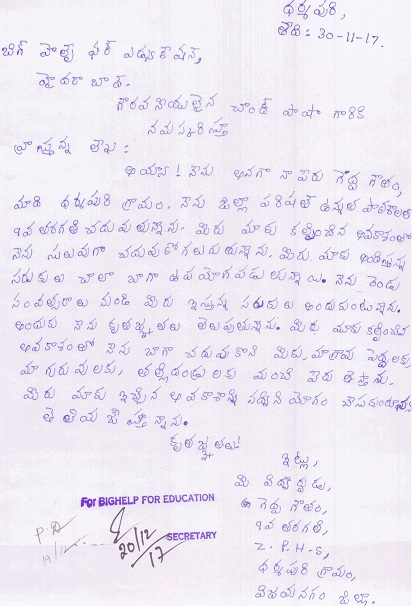 ధర్మపురి,
తేది: 30-11-17.
బిగ్ హెల్ప్ ఫర్ ఎడ్యుకేషన్,
హైదరాబాద్.
గౌరవనీయులైన చాంద్ పాషా గారికి
నమస్కరిస్తూ
వ్రాస్తున్న లేఖ:
అయ్యా! నేను అనగా నా పేరు గెద్ద గౌతం,
మాది ధర్మపురి గ్రామం. నేను జిల్లా పరిషత్ ఉన్నత పాఠశాలలో
9వ తరగతి చదువుతున్నాను. మీరు మాకు కల్పించిన అవకాశంతో
నేను సులువుగా చదువుకోగలుగుతున్నాను. మీరు మాకు అందిస్తున్న
సరుకులు చాలా బాగా ఉపయోగపడుతున్నాయి. నేను రెండు
సంవత్సరాలు నుండి మీరు ఇస్తున్న సరుకులు అందుకుంటున్నాను.
అందుకు నేను కృతజ్ఞతలు తెలుపుతున్నాను. మీరు మాకు కల్పించిన
అవకాశంతో నేను బాగా చదువుకొని మీకు, మా గ్రామ పెద్దలకు,
మా గురువులకు, తల్లిదండ్రులకు మంచి పేరు తెస్తాను.
మీరు మాకు ఇచ్చిన అవకాశాన్ని సద్వినియోగం చేసుకుంటానని
తెలియజేస్తున్నాను.
కృతజ్ఞతలు!
ఇట్లు,
మీ విద్యార్థుడు,
గెద్ద గౌతం,
9వ తరగతి,
Z.P.H.S,
ధర్మపురి గ్రామం,
విజయనగరం జిల్లా.
For BIGHELP FOR EDUCATION
20/12/17
SECRETARY